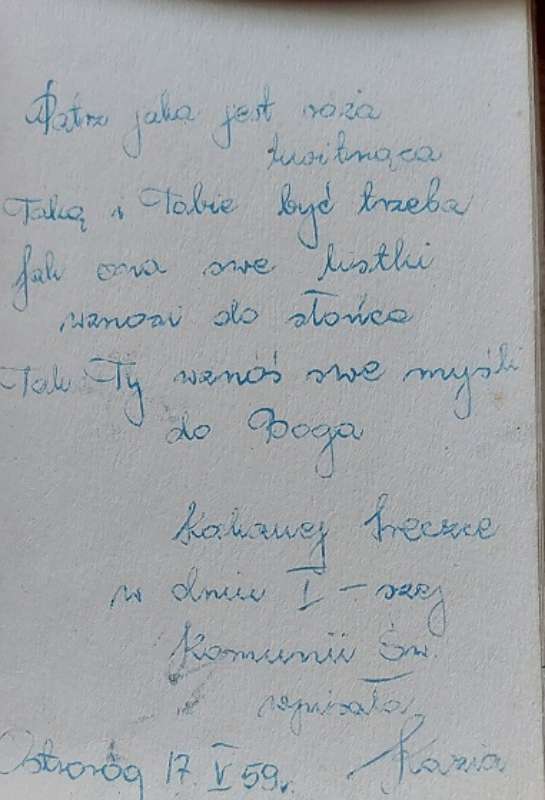 Patrz jaka jest róża
kwitnąca
Taką i Tobie być trzeba
Jak ona swe listki
wznosi do słońca
Tak Ty wznoś swe myśli
do Boga
Kochanej
w dniu I-szej
Komunii Św.
wpisała
Ostroróg 17 V 59r. Kazia